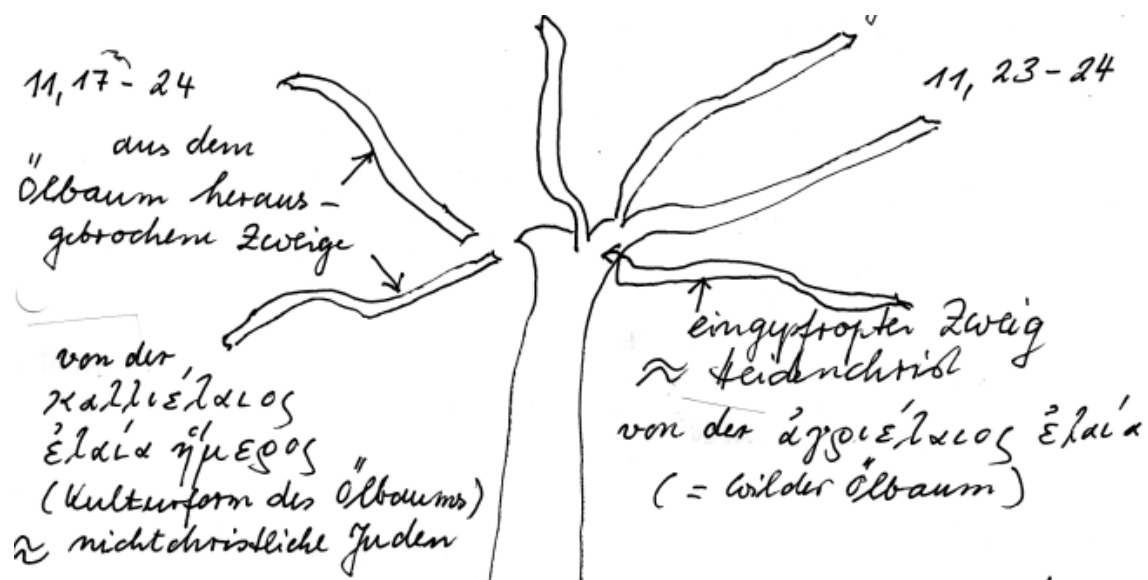 11, 17 - 24
aus dem
Ölbaum heraus-
gebrochene Zweige
von der
καλλιέλαιος
ἐλαία ἥμερος
(Kulturform des Ölbaums)
≈ nichtchristliche Juden
11, 23 - 24
eingepfropfter Zweig
≈ Heidenchrist
von der ἀγριέλαιος ἐλαία
(= wilder Ölbaum)